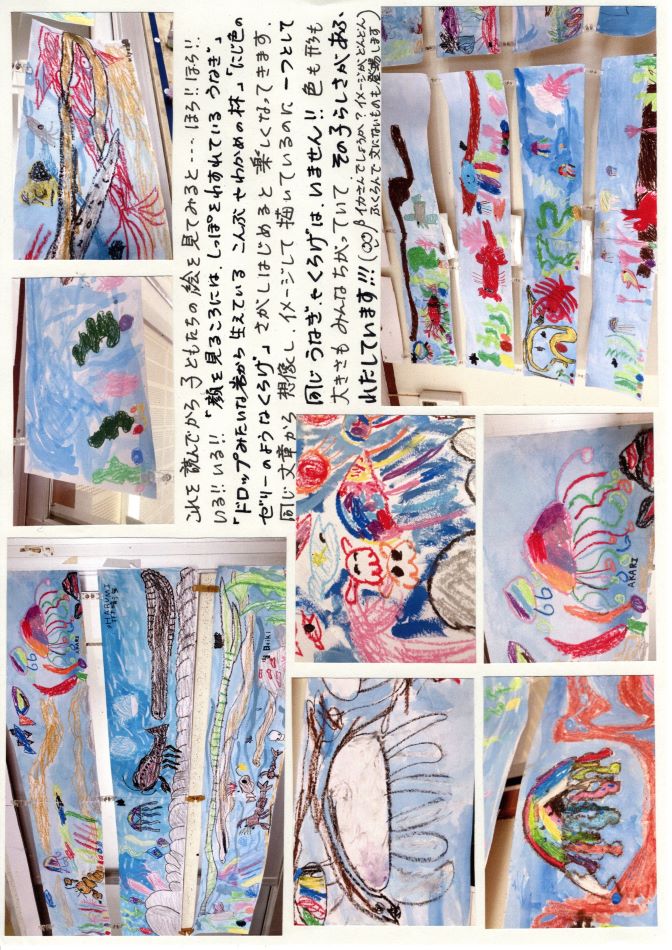 これを 読んでから 子どもたちの 絵を 見てみると・・・・ほら!!ほら!!
いる!!いる!! 「顔を見るころには、しっぽをわすれている うなぎ」
「ドロップみたいな岩から 生えている こんぶやわかめの林」「にじ色の
ゼリーのようなくらげ」 さがしはじめると 楽しくなってきます.
同じ文章から 想像し、イメージして 描いているのに 一つとして
同じうなぎやくらげは、いません!! 色も形も
大きさも みんなちがっていて その子らしさがあふ
れだしています!!!
イカさんでしょうか?イメージがどんどん
ふくらんで文にないものも登場します)
AKARI
HARUMI
AKARI